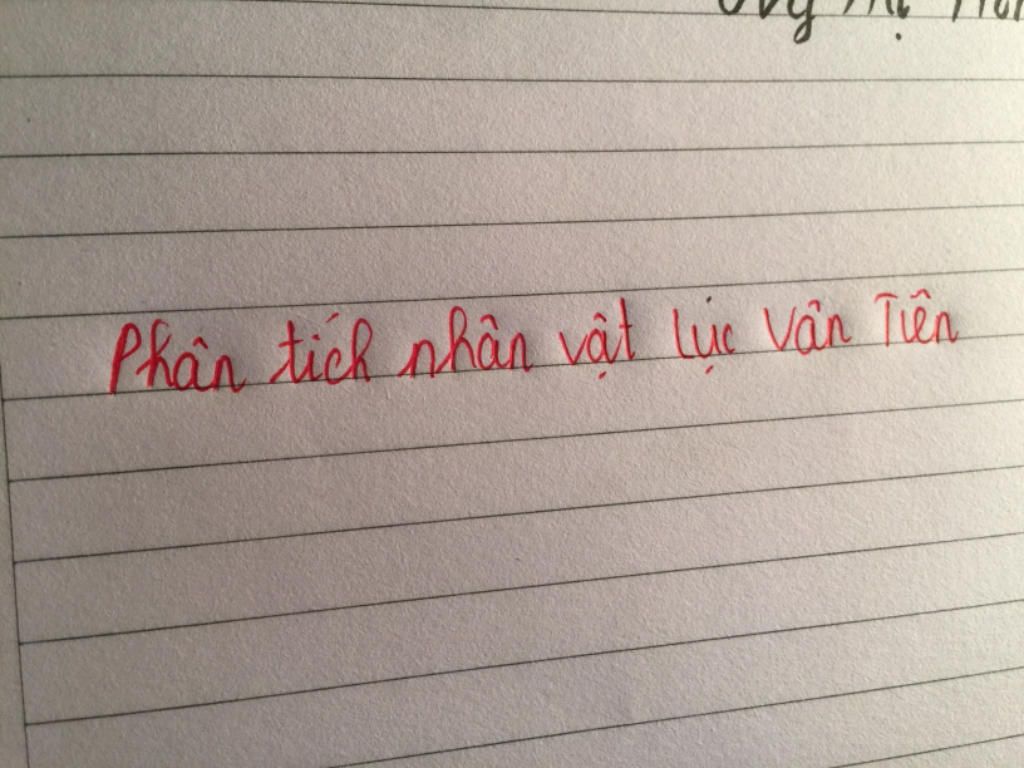 Phân tích nhân vật Lục Vân Tiên